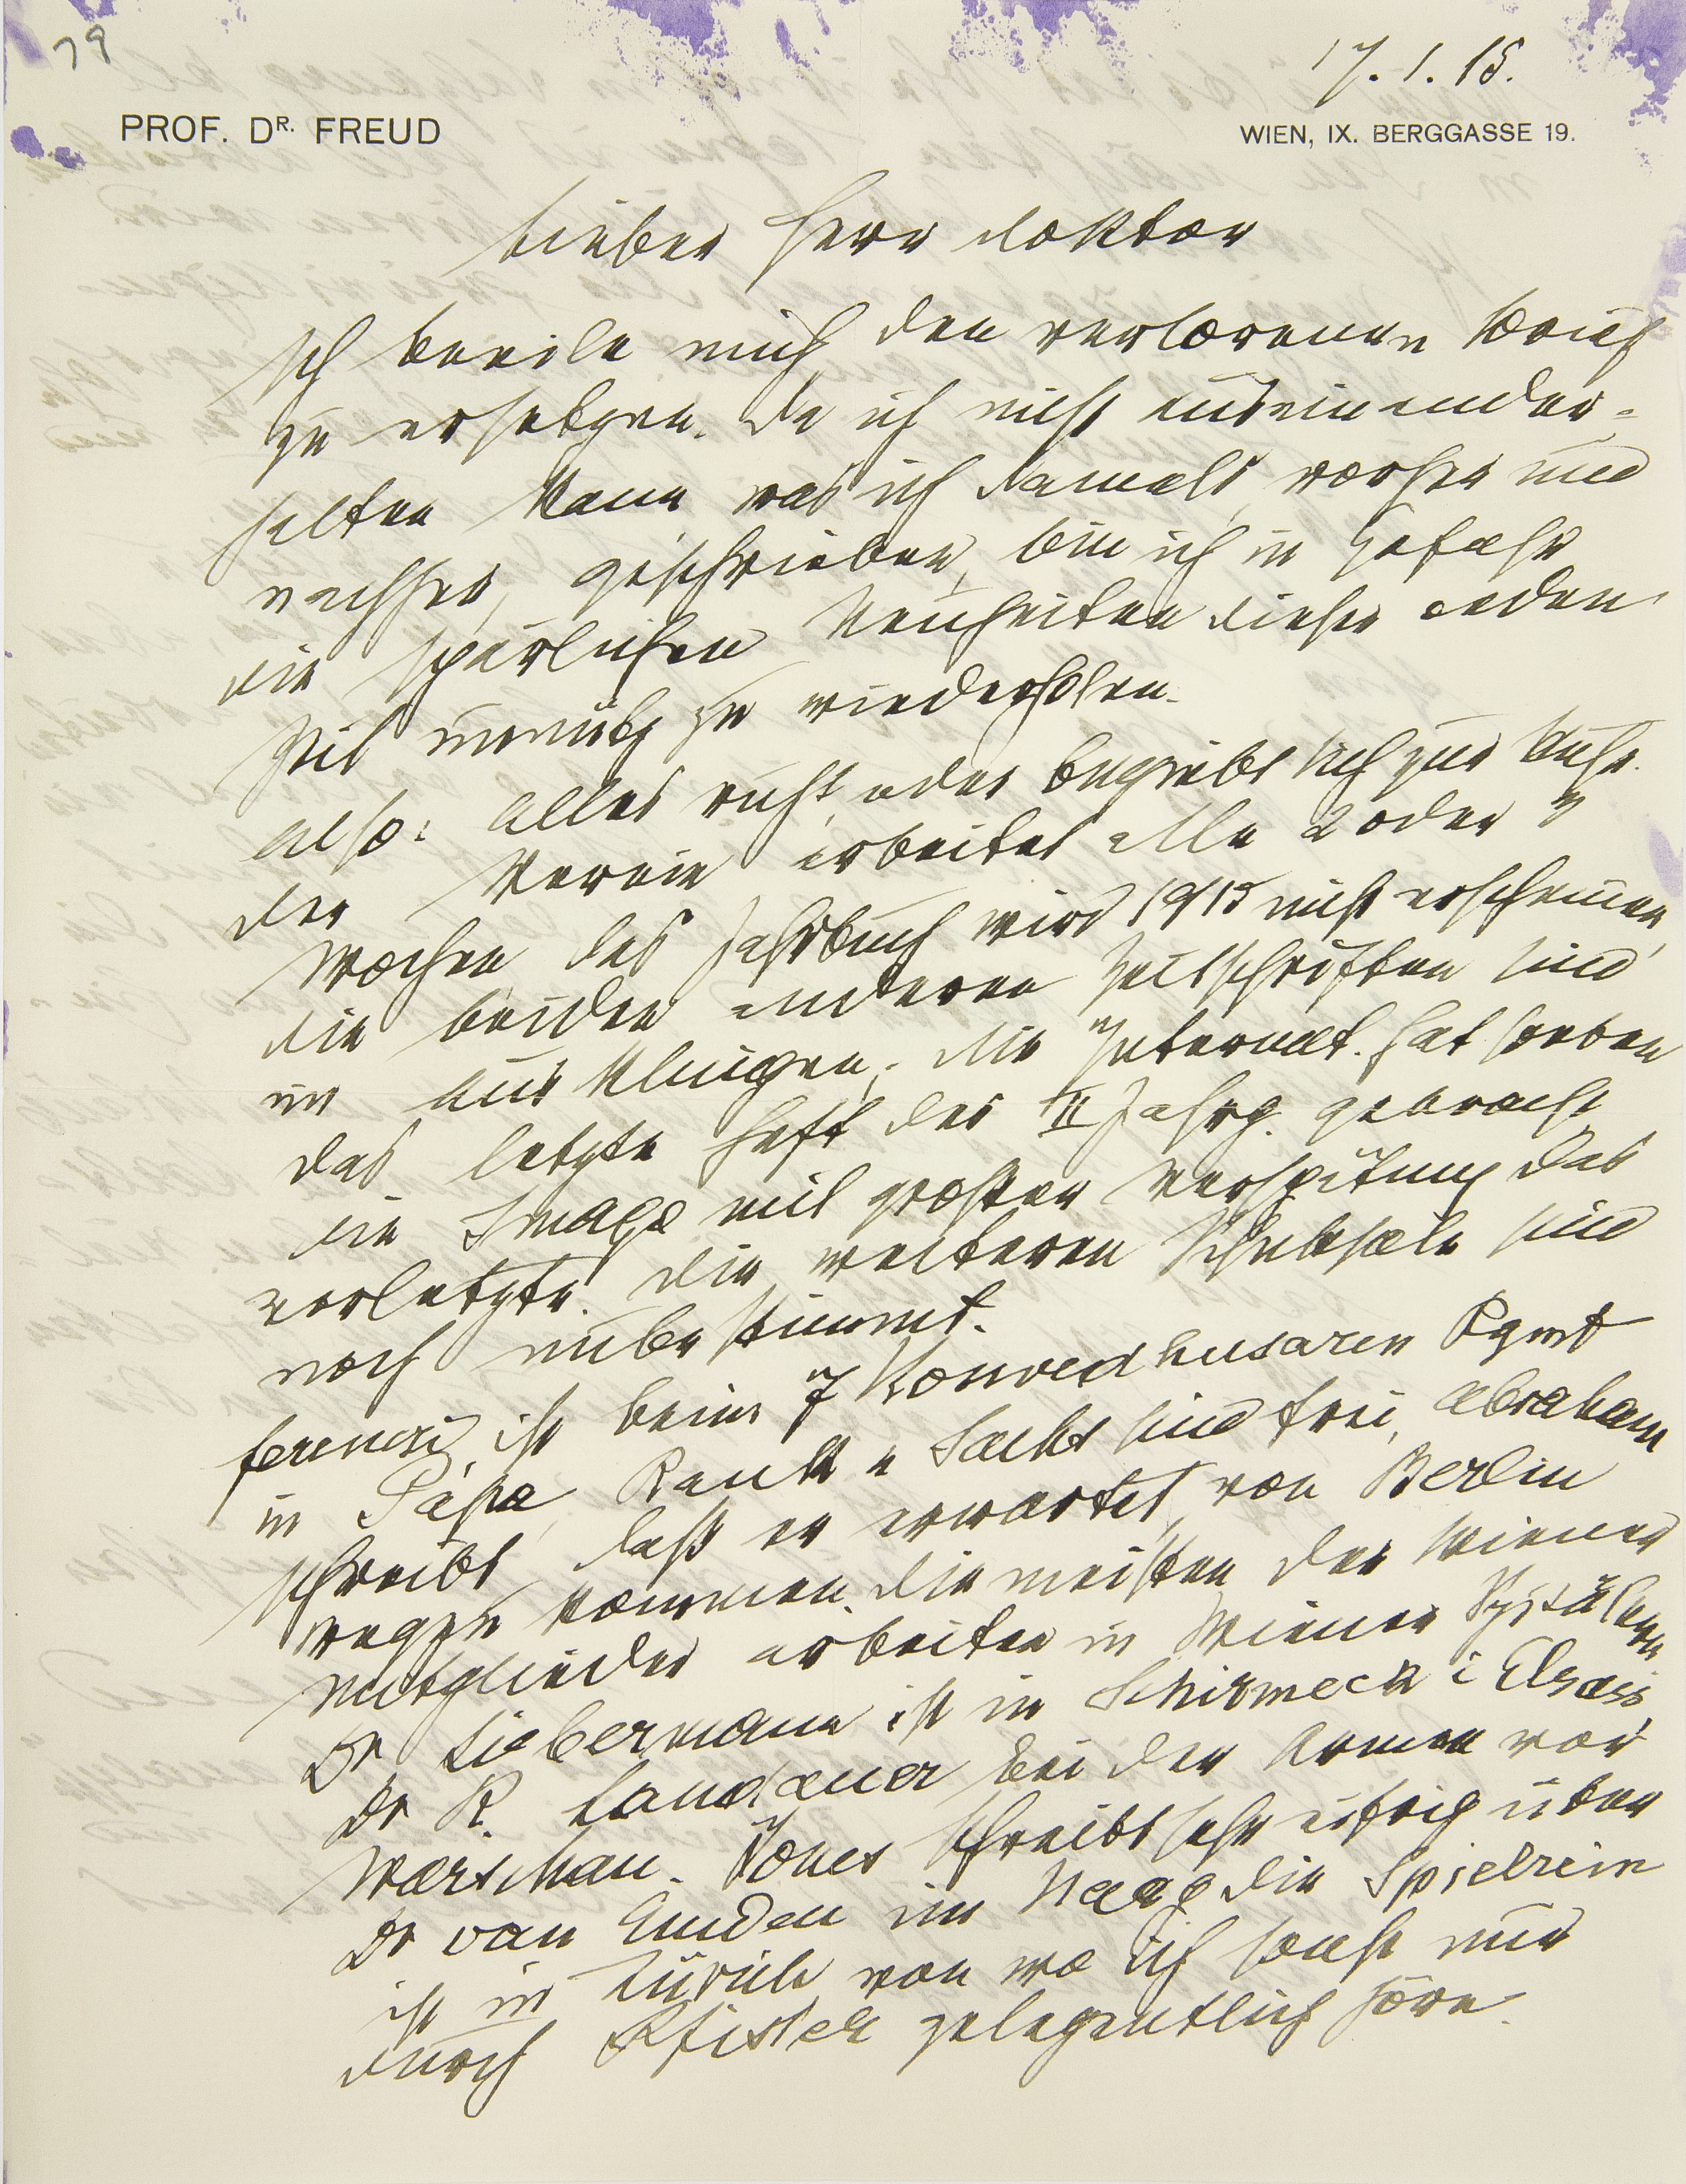 79
17. 1. 15.
PROF. DR. FREUD
WIEN, IX. BERGGASSE 19.
Lieber Herr Doktor
Ich beeile mich den verlorenen Brief
zu ersetzen. Da ich nicht auseinander-
halten kann was ich damals, vorher und
nachher, geschrieben, bin ich in Gefahr
die spärlichen Neuheiten dieser oeden
Zeit unnütz zu wiederholen.
Also: Alles ruht oder begiebt sich zur Ruhe.
Der Verein arbeitet alle 2 oder 3
Wochen das Jahrbuch wird 1915 nicht erscheinen,
die beiden anderen Zeitschriften sind
im Ausklingen; die Internat. hat soeben
das letzte Heft des II Jahrg. gebracht,
die Imago mit großer Verspätung das
vorletzte. Die weiteren Schicksale sind
noch unbestimmt.
Ferenczi ist beim 7 Honvedhusaren Rgmt
in Pápa, Rank u Sachs sind frei, Abraham
schreibt, daß er erwartet, von Berlin
wegzukommen. Die meisten der Wiener
Mitglieder arbeiten in Wiener Spitälern
Dr Liebermann ist in Schirmeck i Elsass,
Dr R. Landauer bei der Armee vor
Warschau. Jones schreibt sehr eifrig über
Dr van Emden im Haag die Spielrein
ist in Zürich von wo ich sonst nur
durch Pfister gelegentlich höre.